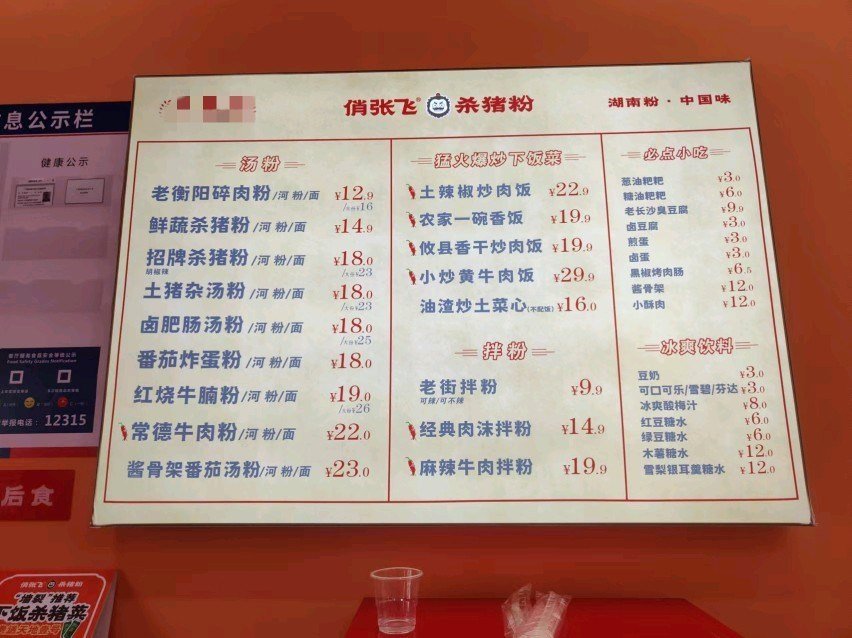 息公示栏
健康公示
餐厅服务食品安全等级公示
Food Safety Grades Notification
举报电话：12315
后食
俏张飞 杀猪粉
"墙裂"推荐
下饭杀猪菜
俏张飞® 杀猪粉
湖南粉·中国味
汤粉
老衡阳碎肉粉/河粉/面 ¥12.9
/大份¥16
鲜蔬杀猪粉/河粉 ¥14.9
招牌杀猪粉/河粉 ¥18.0
胡椒辣 /大份¥23
土猪杂汤粉/河粉 ¥18.0
/大份¥23
卤肥肠汤粉/河粉 ¥18.0
/大份¥25
番茄炸蛋粉/河粉 ¥18.0
红烧牛腩粉/河粉 ¥19.0
/大份¥26
常德牛肉粉/河粉/面 ¥22.0
酱骨架番茄汤粉/河粉/面 ¥23.0
猛火爆炒下饭菜
土辣椒炒肉饭 ¥22.9
农家一碗香饭 ¥19.9
攸县香干炒肉饭 ¥19.9
小炒黄牛肉饭 ¥29.9
油渣炒土菜心(不配饭) ¥16.0
拌粉
老街拌粉 ¥9.9
可辣/可不辣
经典肉沫拌粉 ¥14.9
麻辣牛肉拌粉 ¥19.9
必点小吃
葱油粑粑 ¥3.0
糖油粑粑 ¥6.0
老长沙臭豆腐 ¥9.9
卤豆腐 ¥3.0
煎蛋 ¥3.0
卤蛋 ¥3.0
黑椒烤肉肠 ¥6.5
酱骨架 ¥12.0
小酥肉 ¥12.0
冰爽饮料
豆奶 ¥3.0
可口可乐/雪碧/芬达 ¥3.0
冰爽酸梅汁 ¥8.0
红豆糖水 ¥6.0
绿豆糖水 ¥6.0
木薯糖水 ¥12.0
雪梨银耳羹糖水 ¥12.0